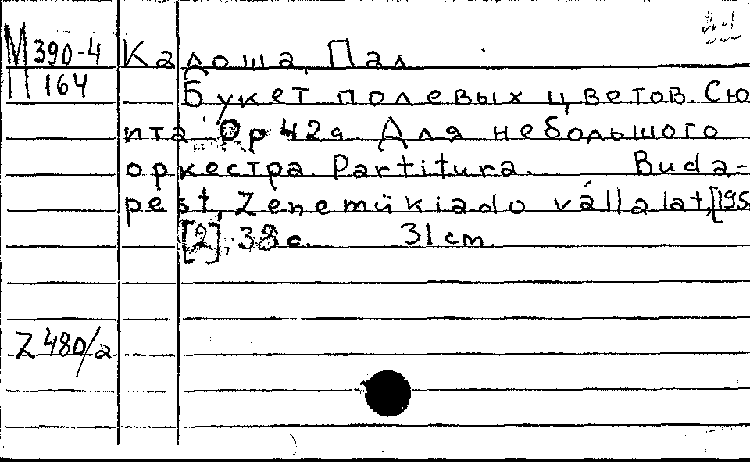 М 390-4 Кадоша, Пал
П 164
Букет полевых цветов. Сю
ита Op 42a. Для небольшого
оркестра. Partitura. Buda-
pest, Zenemükiado vállalat, [195
[2], 38 с. 31 cm.
Z 480/a